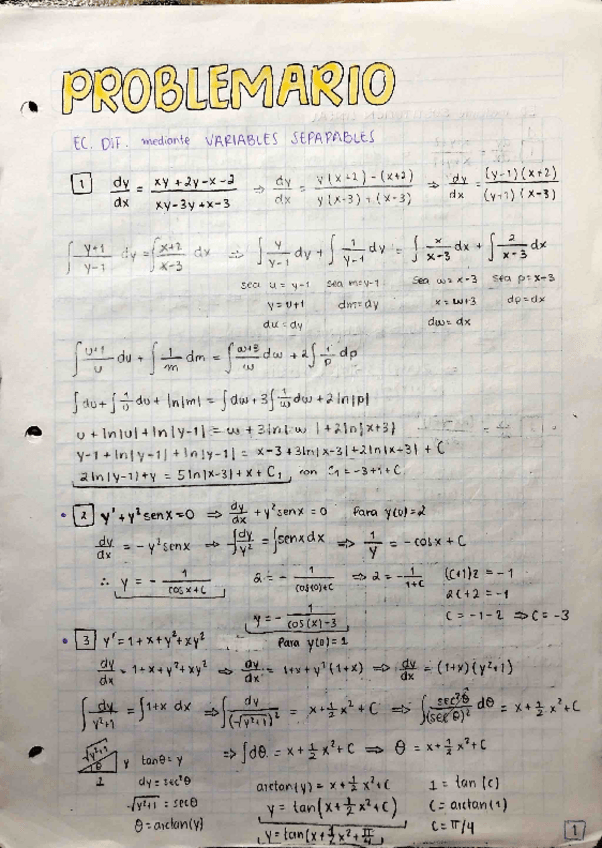 PROBLEMARIO
EC. DIF. mediante VARIABLES SEPARABLES
1 dy/dx = xy + 2y - x - 2 / xy - 3y + x - 3 ⇒ dy/dx = y(x+2) - (x+2) / y(x-3) + (x-3) ⇒ dy/dx = (y-1)(x+2) / (y+1)(x-3)
∫ y+1/y-1 dy = ∫ x+2/x-3 dx ⇒ ∫ y/y-1 dy + ∫ 1/y-1 dy = ∫ x/x-3 dx + ∫ 2/x-3 dx
sea u = y-1 sea m = y-1 sea w = x-3 sea p = x-3
y = u+1 dm = dy x = w+3 dp = dx
du = dy dw = dx
∫ u+1/u du + ∫ 1/m dm = ∫ w+3/w dw + 2∫ 1/p dp
∫du + ∫ 1/u du + ln|m| = ∫dw + 3∫ 1/w dw + 2ln|p|
u + ln|u| + ln|y-1| = w + 3ln|w| + 2ln|x+3|
y-1 + ln|y-1| + ln|y-1| = x-3 + 3ln|x-3| + 2ln|x-3| + C
2ln|y-1| + y = 5ln|x-3| + x + C₁ con C₁ = -3+1+C
2 y' + y² senx = 0 ⇒ dy/dx + y² senx = 0 Para y(0) = 2
dy/dx = -y² senx ⇒ ∫ dy/y² = ∫ senx dx ⇒ 1/y = -cosx + C
∴ y = - 1/cosx + C 2 = - 1/cos(0)+C ⇒ 2 = - 1/1+C (C+1)2 = -1
2C + 2 = -1
y = - 1/cos(x)-3 C = -1-2 ⇒ C = -3
3 y' = 1+x+y²+xy² Para y(0) = 1
dy/dx = 1+x+y²+xy² ⇒ dy/dx = 1+x+y²(1+x) ⇒ dy/dx = (1+x)(y²+1)
∫ dy/y²+1 = ∫1+x dx ⇒ ∫ dy/(√y²+1)² = x + 1/2 x² + C ⇒ ∫ sec²θ/(secθ)² dθ = x + 1/2 x² + C
√y²+1 θ y 1 tanθ = y ⇒ ∫dθ = x + 1/2 x² + C ⇒ θ = x + 1/2 x² + C
dy = sec²θ arctan(y) = x + 1/2 x² + C 1 = tan(C)
√y²+1 = secθ y = tan(x + 1/2 x² + C) C = arctan(1)
θ = arctan(y) y = tan(x + 1/2 x² + π/4) C = π/4
1